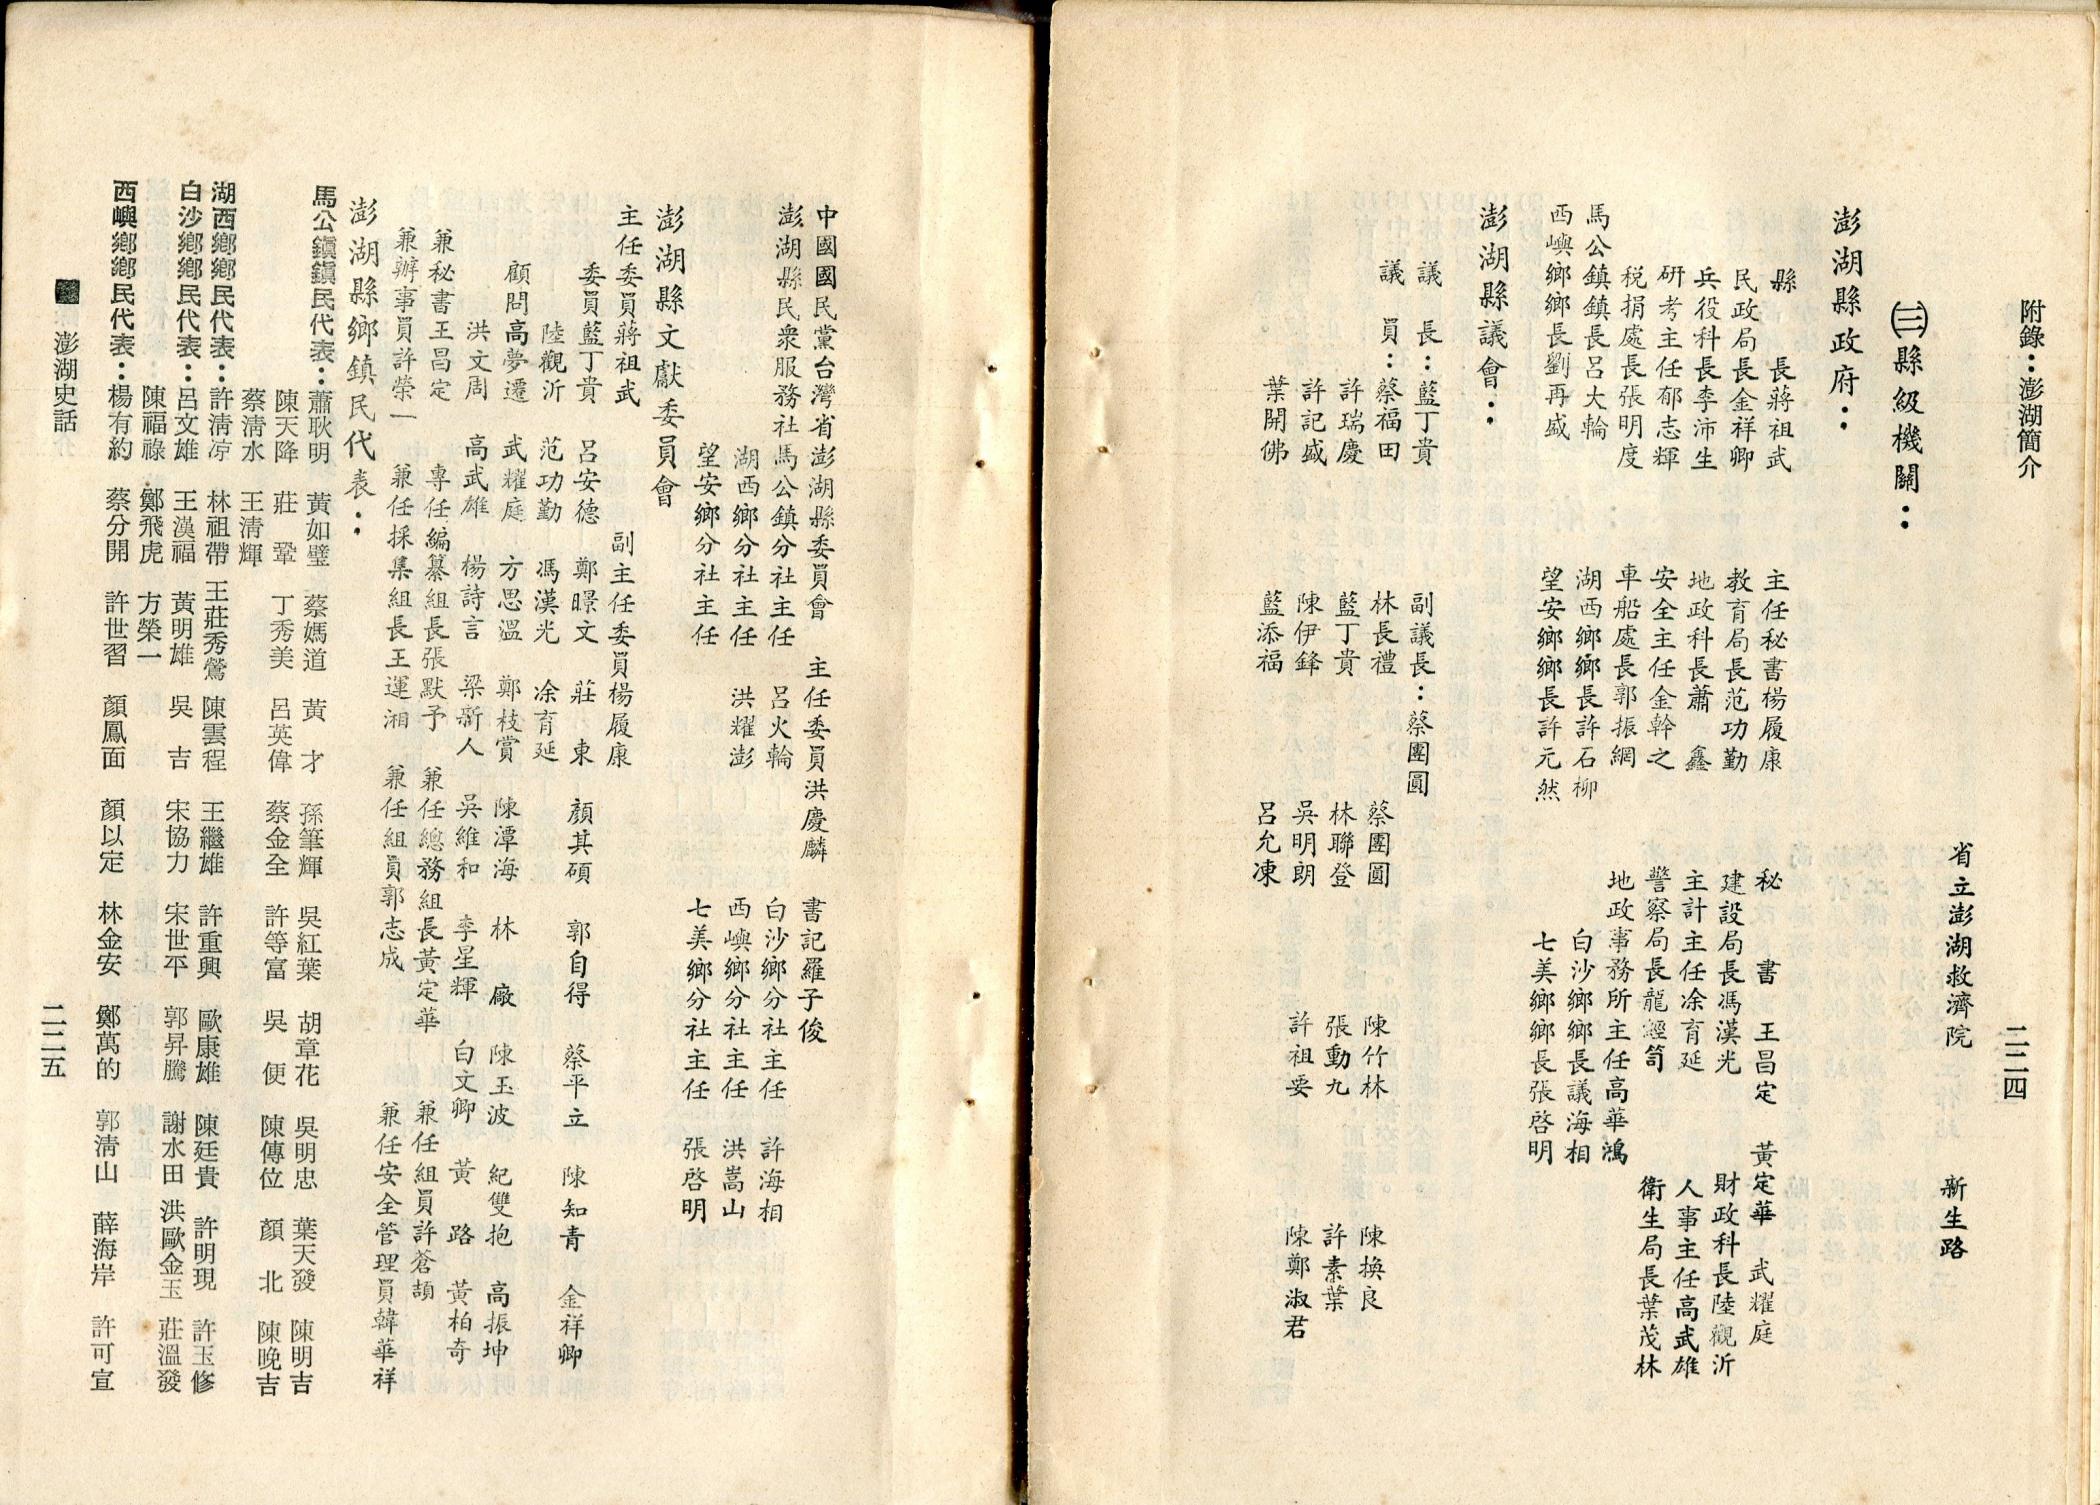 附錄：澎湖簡介　二二四
省立澎湖救濟院　新生路
㈢縣級機關：
澎湖縣政府：
縣　長蔣祖武　主任秘書楊履康　秘　書　王昌定　黃定華　武耀庭
民政局長金祥卿　教育局長范功勤　建設局長馮漢光　財政科長陸觀沂
兵役科長李沛生　地政科長蕭　鑫　主計主任凃育延　人事主任高武雄
研考主任郁志輝　安全主任金幹之　警察局長龍經笥　衛生局長葉茂林
稅捐處長張明度　車船處長郭振綱　地政事務所主任高華鴻
馬公鎮鎮長呂大輪　湖西鄉鄉長許石柳　白沙鄉鄉長議海相
西嶼鄉鄉長劉再盛　望安鄉鄉長許元然　七美鄉鄉長張啓明
澎湖縣議會：
議　長：藍丁貴　副議長：蔡團圓
議　員：蔡福田　林長禮　蔡團圓　陳竹林　陳換良
許瑞慶　藍丁貴　林聯登　張動九　許素葉
許記盛　陳伊鋒　吳明朗　許祖要　陳鄭淑君
葉開佛　藍添福　呂允凍
中國國民黨台灣省澎湖縣委員會　主任委員洪慶麟　書記羅子俊
澎湖縣民衆服務社馬公鎮分社主任　呂火輪　白沙鄉分社主任　許海相
湖西鄉分社主任　洪耀澎　西嶼鄉分社主任　洪嵩山
望安鄉分社主任　七美鄉分社主任　張啓明
澎湖縣文獻委員會
主任委員蔣祖武　副主任委員楊履康
委員藍丁貴　呂安德　鄭暻文　莊　東　顏其碩　郭自得　蔡平立　陳知青　金祥卿
陸觀沂　范功勤　馮漢光　凃育延
顧問高夢遷　武耀庭　方思溫　鄭枝賞　陳潭海　林　廠　陳玉波　紀雙抱　高振坤
洪文周　高武雄　楊詩言　梁新人　吳維和　李星輝　白文卿　黃　路　黃柏奇
兼秘書王昌定　專任編纂組長張默予　兼任總務組長黃定華　兼任組員許蒼頡
兼辦事員許榮一　兼任採集組長王運湘　兼任組員郭志成　兼任安全管理員韓華祥
澎湖縣鄉鎮民代表：
馬公鎮鎮民代表：蕭耿明　黃如璧　蔡媽道　黃　才　孫筆輝　吳紅葉　胡章花　吳明忠　葉天發　陳明吉
陳天降　莊　鞏　丁秀美　呂英偉　蔡金全　許等富　吳　便　陳傳位　顏　北　陳晚吉
蔡清水　王清輝
湖西鄉鄉民代表：許清凉　林祖帶　王莊秀鶯　陳雲程　王繼雄　許重興　歐康雄　陳廷貴　許明現　許玉修
白沙鄉鄉民代表：呂文雄　王漢福　黃明雄　吳　吉　宋協力　宋世平　郭昇騰　謝水田　洪歐金玉　莊溫發
陳福祿　鄭飛虎　方榮一
西嶼鄉鄉民代表：楊有約　蔡分開　許世習　顏鳳面　顏以定　林金安　鄭萬的　郭清山　薛海岸　許可宣
澎湖史話　二二五